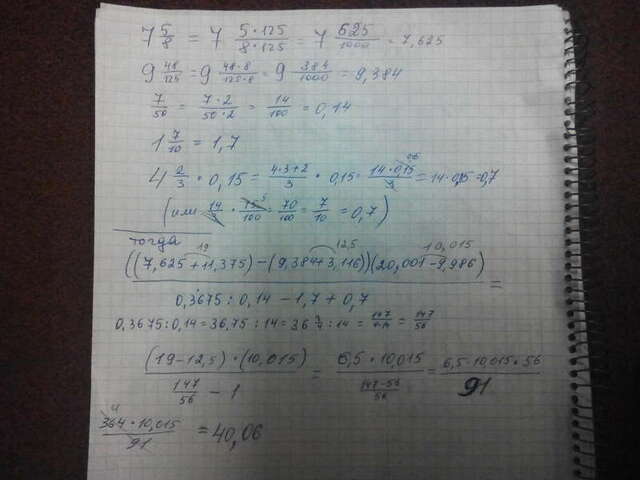 7 5/8 = 7 5·125/8·125 = 7 625/1000 = 7,625
9 48/125 = 9 48·8/125·8 = 9 384/1000 = 9,384
7/50 = 7·2/50·2 = 14/100 = 0,14
1 7/10 = 1,7
4 2/3 · 0,15 = 4·3+2/3 · 0,15 = 14·0,15/3 = 14·0,05 = 0,7
(или 14/3 · 15/100 = 70/100 = 7/10 = 0,7)
тогда 19 12,5 10,015
((7,625 + 11,375) - (9,384+3,116))(20,001 - 9,986) =
0,3675 : 0,14 - 1,7 + 0,7
0,3675 : 0,14 = 36,75 : 14 = 36 3/4 : 14 = 147/4·14 = 147/56
(19-12,5) · (10,015) / 147/56 - 1 = 6,5 · 10,015 / 147-56/56 = 6,5·10,015·56 / 91
4
364 · 10,015 / 91 = 40,06